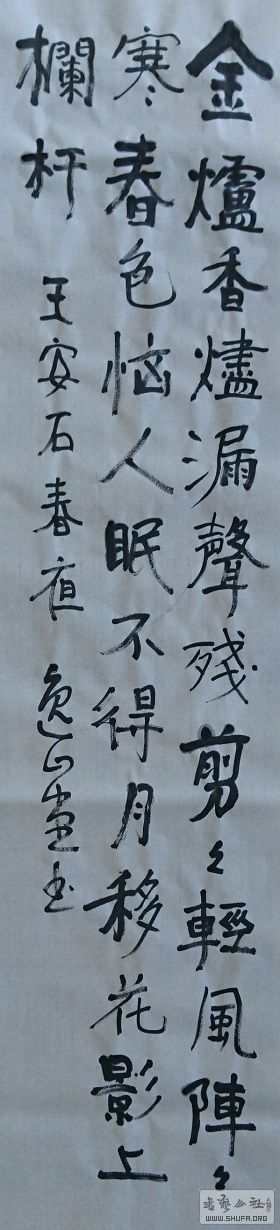 金爐香燼漏聲殘剪〻輕風陣〻
寒春色恼人眠不得月移花影上
欄杆 王安石春夜 逸山堂书
书艺公社
WWW.SHUFA.ORG